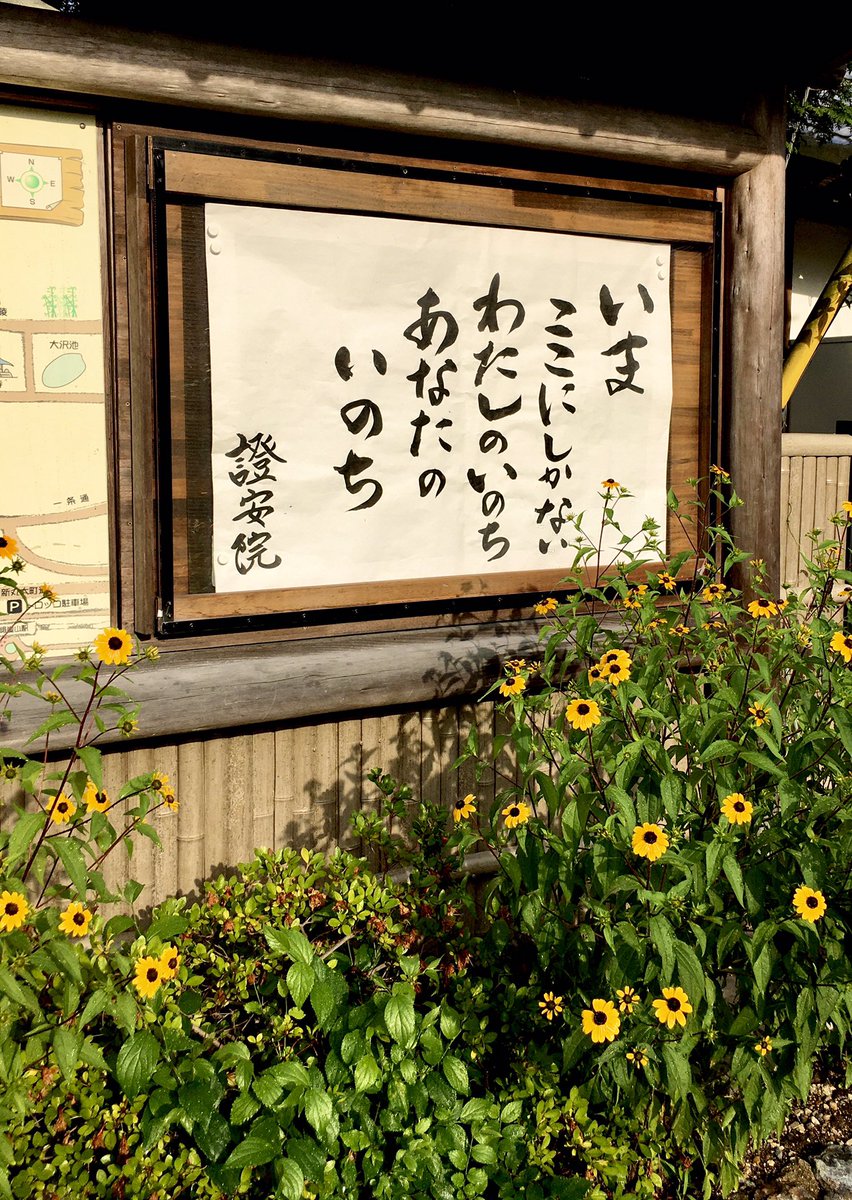 いま
ここにしかない
わたしのいのち
あなたの
いのち
證安院
N
W
E
S
大沢池
一条通
P
トロッコ駐車場